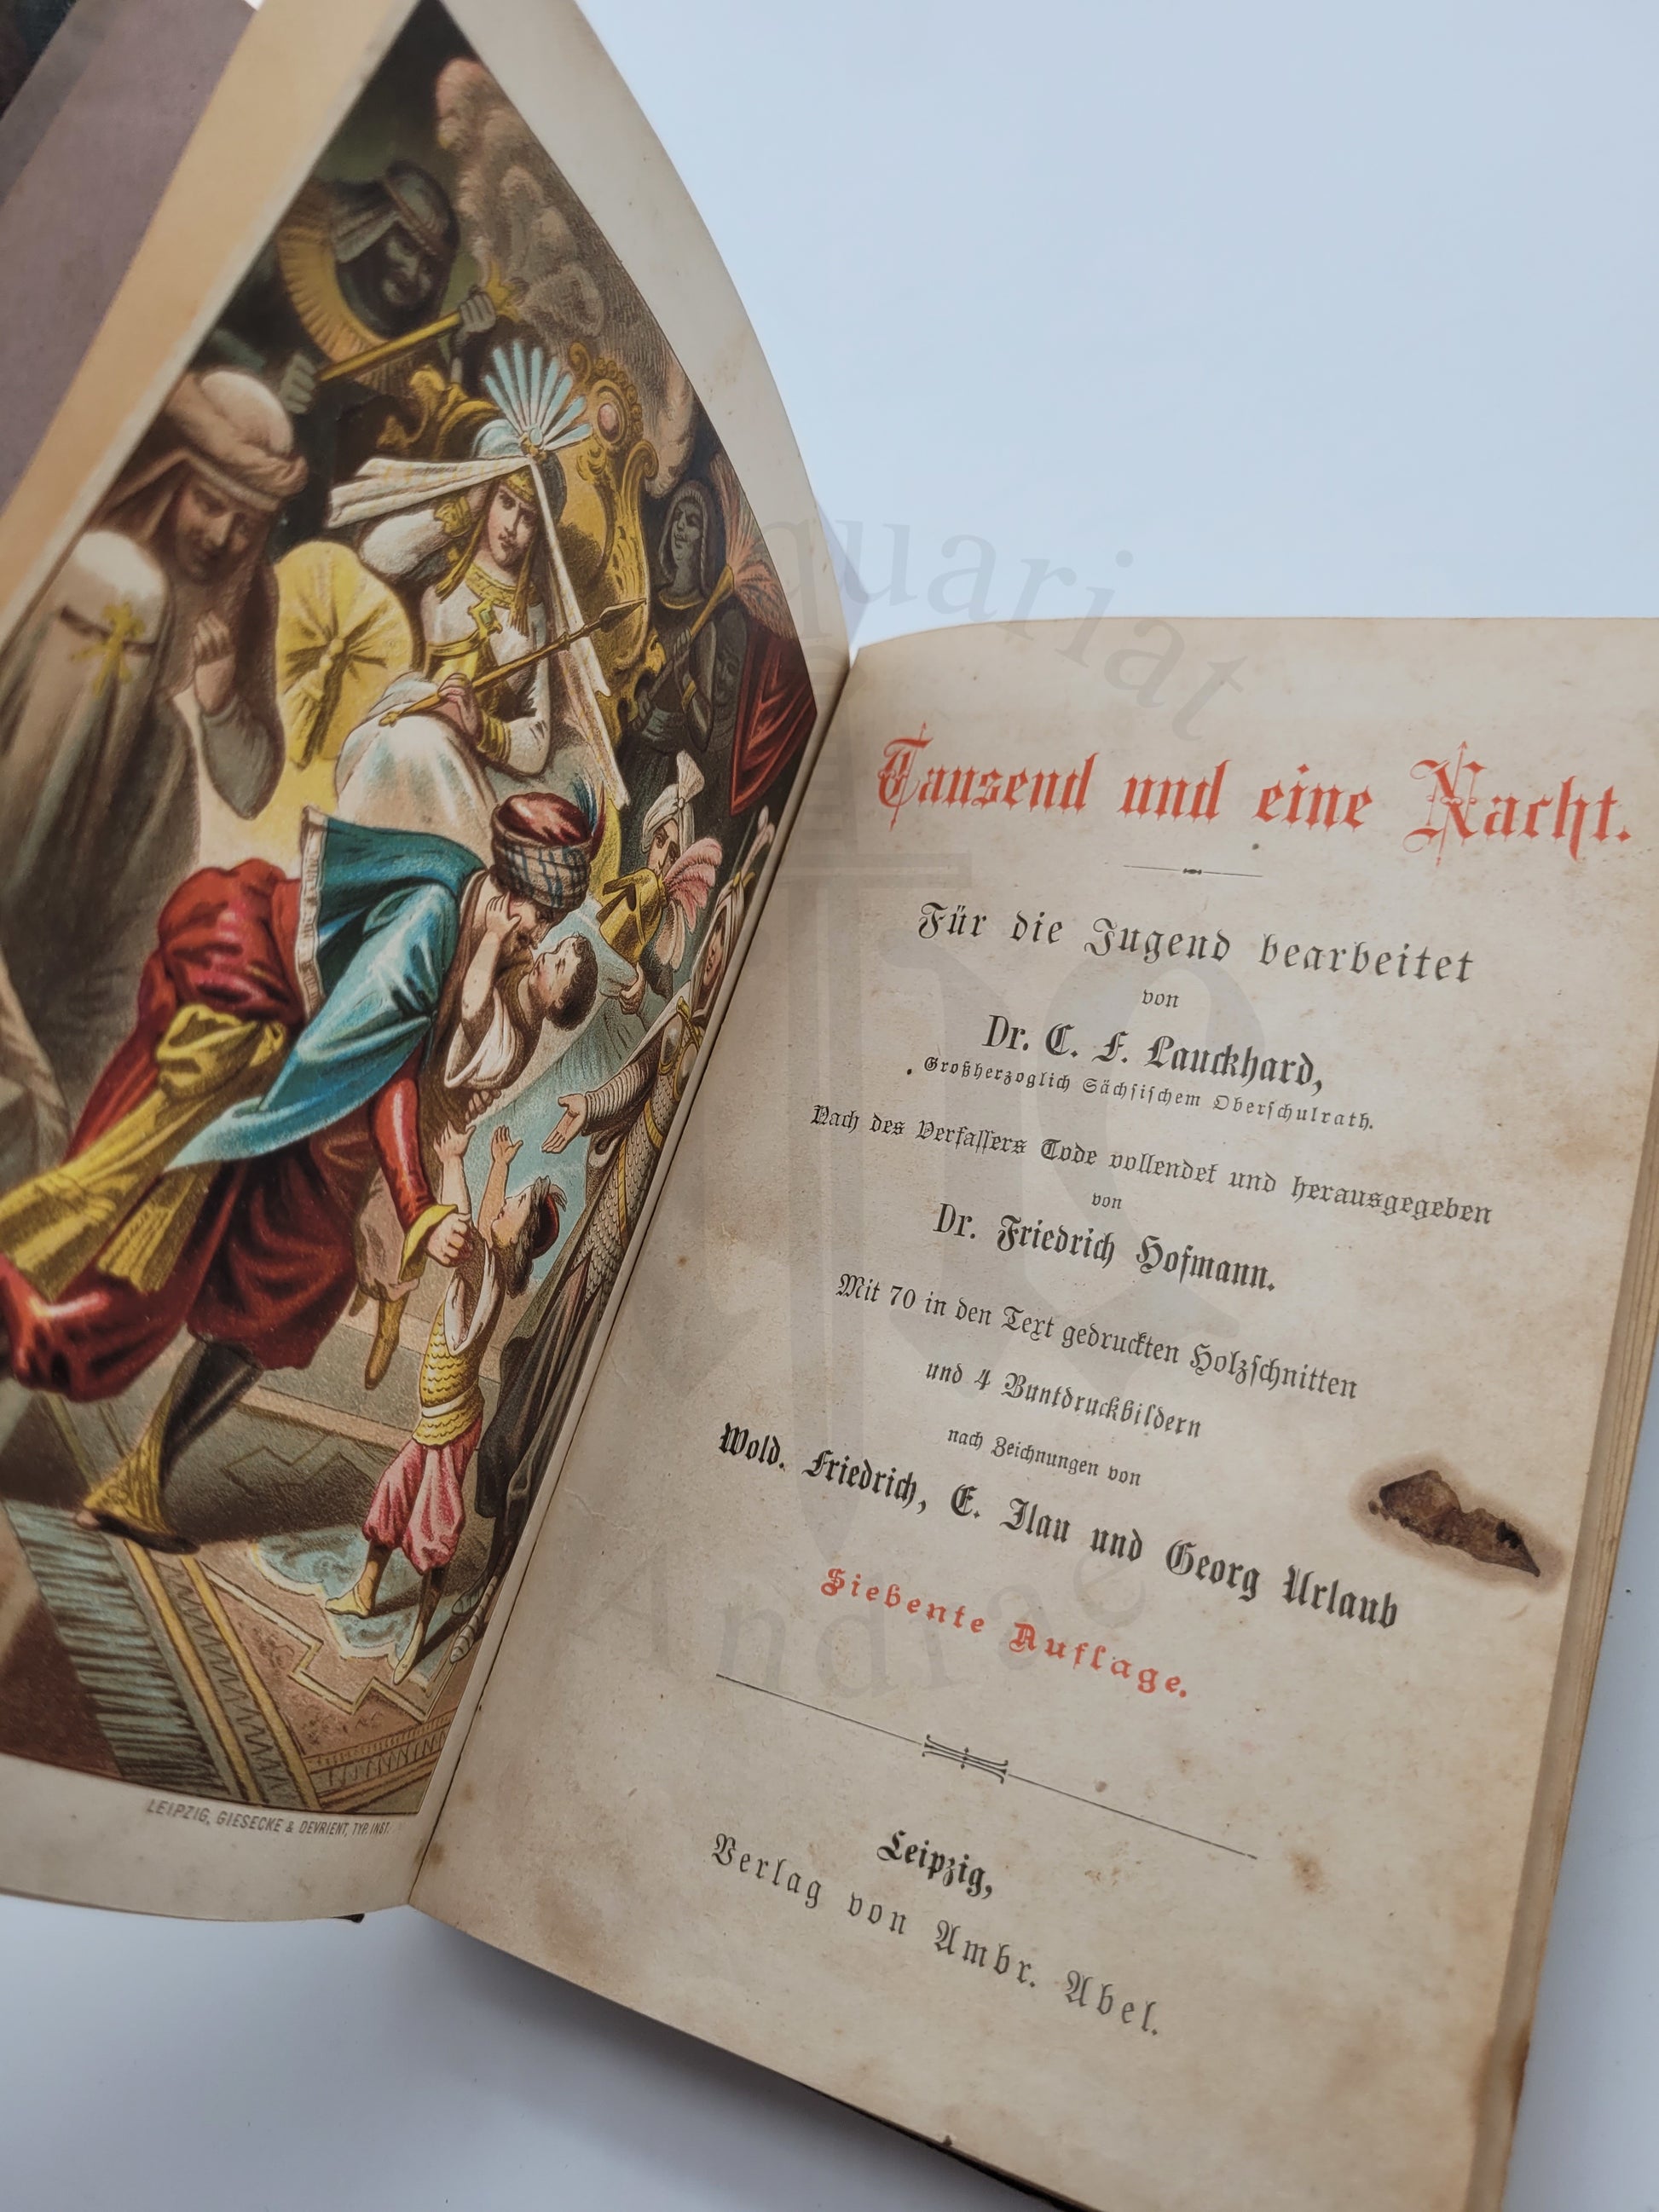 Tausend und eine Nacht.
Für die Jugend bearbeitet
von
Dr. C. F. Lauckhard,
Großherzoglich Sächsischem Oberschulrath.
Nach des Verfassers Tode vollendet und herausgegeben
von
Dr. Friedrich Hofmann.
Mit 70 in den Text gedruckten Holzschnitten
und 4 Buntdruckbildern
nach Zeichnungen von
Wold. Friedrich, E. Ilau und Georg Urlaub
Siebente Auflage.
Leipzig,
Verlag von Ambr. Abel.
LEIPZIG, GIESECKE & DEVRIENT, TYP. INST.
Andrae